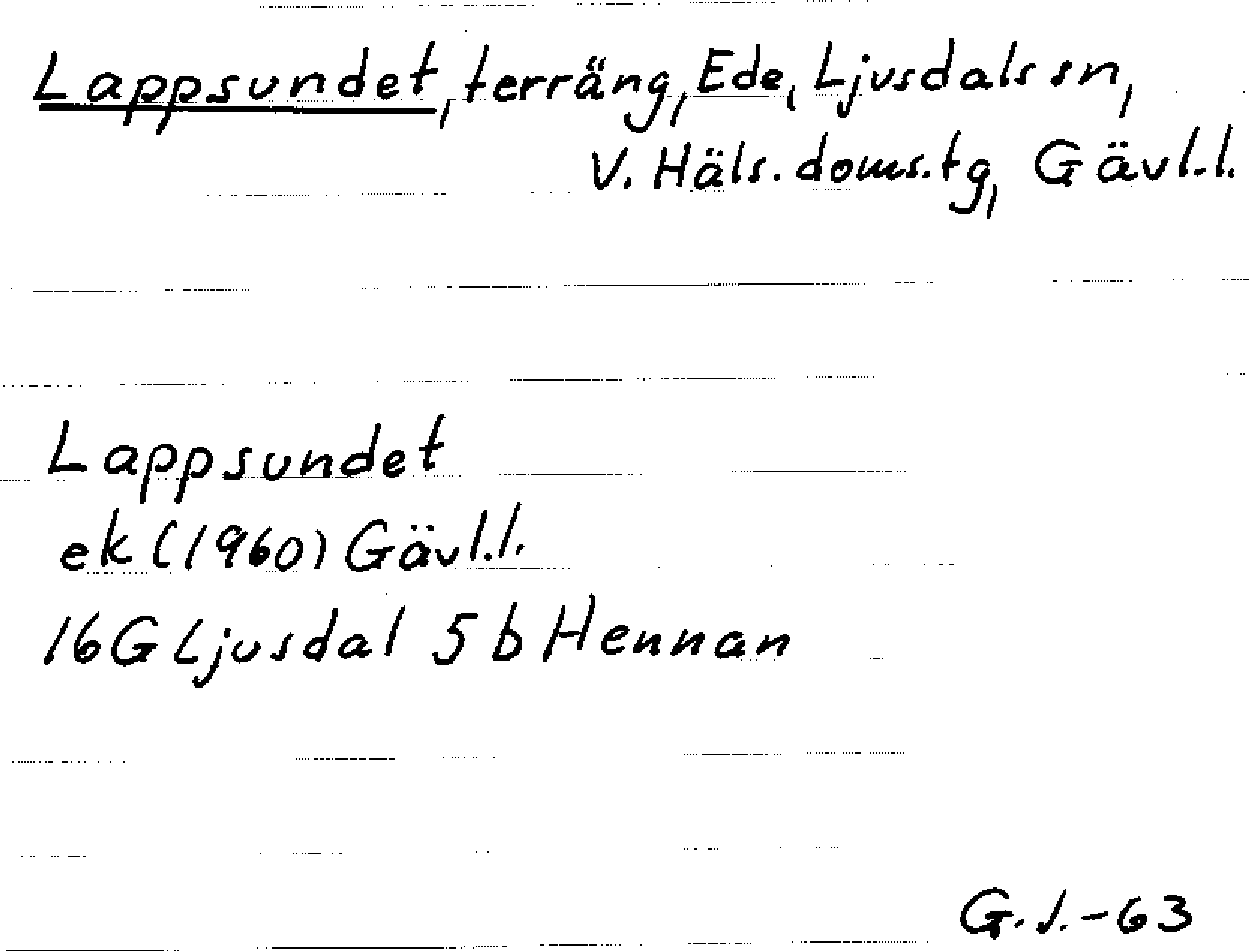 Lappsundet, terräng, Ede, Ljusdals sn,
V. Häls. doms.tg, Gävl.l.
Lappsundet
ek (1960) Gävl.l.
16G Ljusdal 5 b Hennan
G.J.-63